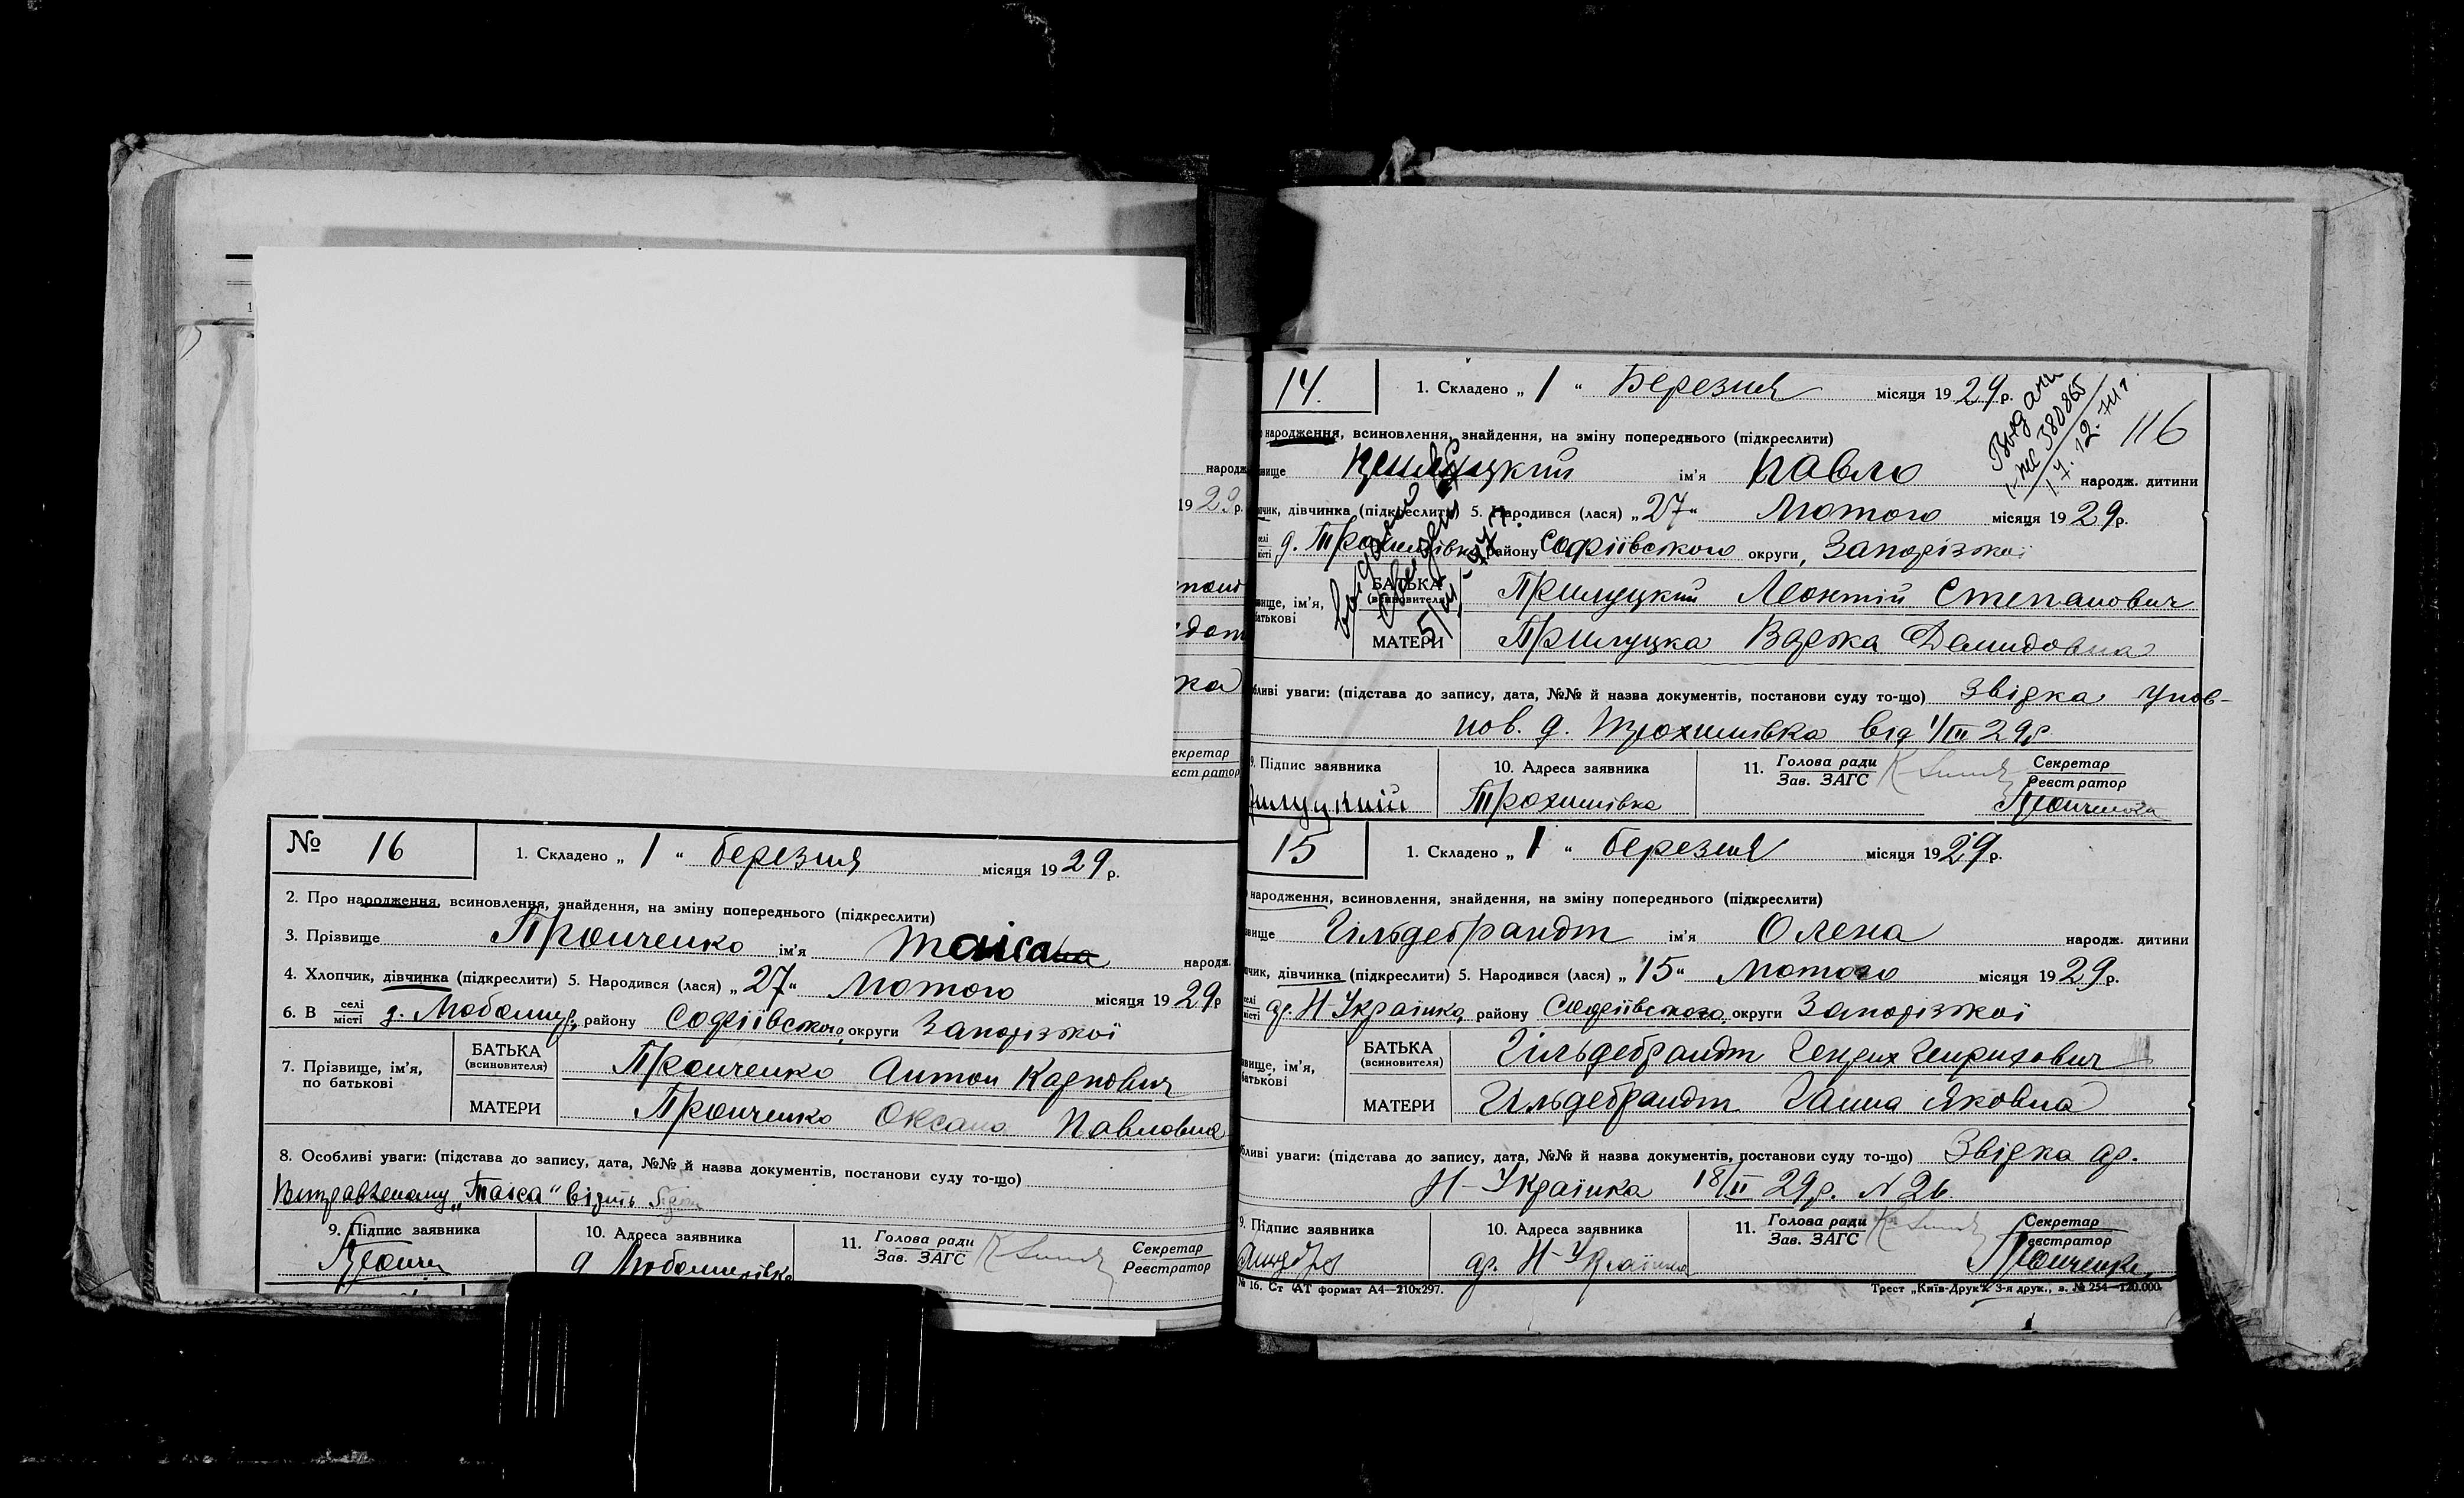 1
народж
19 29 р.
ка
екретар
еєстратор
№ 16
1. Складено „ 1 " березня місяця 19 29 р.
2. Про народження, всиновлення, знайдення, на зміну попереднього (підкреслити)
3. Прізвище Пронченко ім'я Таіса народж.
4. Хлопчик, дівчинка (підкреслити) 5. Народився (лася) „ 27 " Лютого місяця 19 29 р
6. В селі місті д. району Софіївського округи Запорізької
7. Прізвище, ім'я, по батькові
БАТЬКА (всиновителя) Пронченко Антон Карпович
МАТЕРИ Пронченко Оксана Павловна
8. Особливі уваги: (підстава до запису, дата, №№ й назва документів, постанови суду то-що)
Виправленому „Таіса" вірить
9. Підпис заявника
10. Адреса заявника
11. Голова ради Зав. ЗАГС
Секретар Реєстратор
14.
1. Складено „ 1 " Березня місяця 19 29 р.
116
народження, всиновлення, знайдення, на зміну попереднього (підкреслити)
вище Прилуцкий ім'я Павло народж. дитини
пчик, дівчинка (підкреслити) 5. Народився (лася) „ 27 " Лютого місяця 19 29 р.
селі місті д. Трохимівка району Софіївського округи, Запорізької
вище, ім'я, батькові
БАТЬКА (всиновителя) Прилуцкий Леонтій Степанович
МАТЕРИ Прилуцка Варка Демидовна
бливі уваги: (підстава до запису, дата, №№ й назва документів, постанови суду то-що) Звірка Упов-
нов. д. Трохимівка від 1/III 29 р
9. Підпис заявника
10. Адреса заявника
11. Голова ради Зав. ЗАГС
Секретар Реєстратор
Трохимівка Пронченко
15
1. Складено „ 1 " березня місяця 19 29 р.
народження, всиновлення, знайдення, на зміну попереднього (підкреслити)
вище Гільдебрандт ім'я Олена народж. дитини
пчик, дівчинка (підкреслити) 5. Народився (лася) „ 15 " Лютого місяця 19 29 р.
селі місті др. Н-Українка, району Софіївського, округи Запорізької
вище, ім'я, батькові
БАТЬКА (всиновителя) Гільдебрандт Генрих Генрихович
МАТЕРИ Гільдебрандт Ганна Яковна
бливі уваги: (підстава до запису, дата, №№ й назва документів, постанови суду то-що) Звірка др.
Н-Українка 18/II 29 р. N 26
9. Підпис заявника
10. Адреса заявника
11. Голова ради Зав. ЗАГС
Секретар еєстратор
др. Н-Українка Пронченко
№ 16. Ст АТ формат А4—210х297.
Трест „Київ-Друк" 3-я друк., в. № 254—120.000.